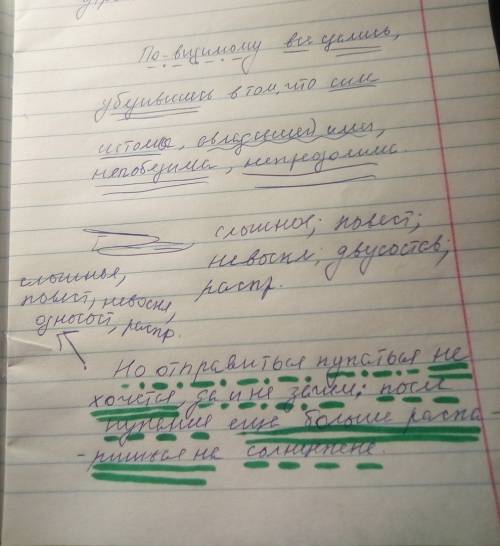 По-видимому все сдались,
убедившись в том, что сим
истома, овладевшей ими,
непобедима, непреодолима.
сложное; повест;
невоскл; двусостав;
распр.
сложное,
повест, невоскл,
односост, распр.
Но отправиться купаться не
хочется, да и не зачем; после
купания еще больше распа-
-ришься на солнцепеке.